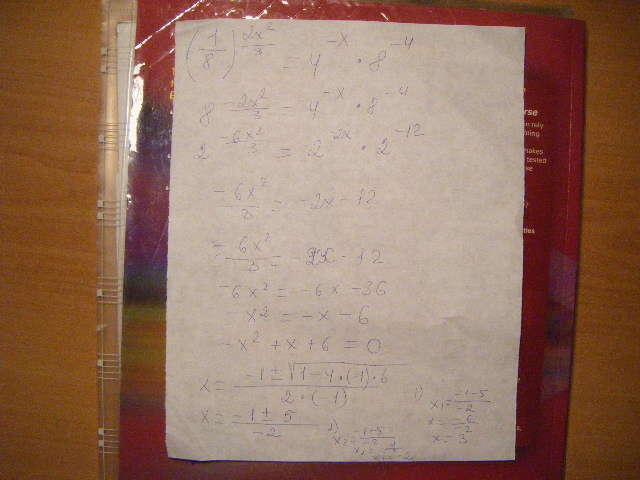 (1/8)^(2x²/3) = 4^(-x) · 8^(-4)
8^(-2x²/3) = 4^(-x) · 8^(-4)
2^(-6x²/3) = 2^(-2x) · 2^(-12)
-6x²/3 = -2x - 12
-6x²/3 = -2x - 12
-6x² = -6x - 36
-x² = -x - 6
-x² + x + 6 = 0
x = (-1 ± √(1-4·(-1)·6))/(2·(-1))
x = (-1 ± 5)/(-2)
1)
x₁ = (-1-5)/(-2)
x = (-6)/(-2)
x = 3
2)
rse
ties